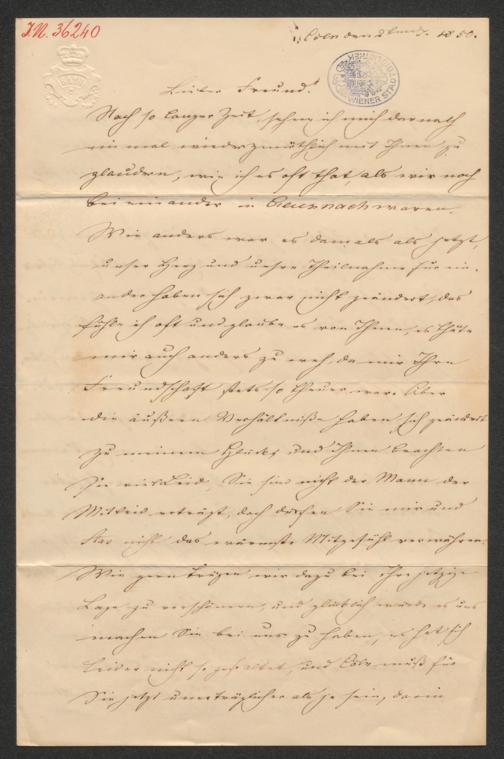 I.N. 36240
BATH
WIENER STADT
Cöln den 2 1850.
Lieber Freund!
Nach so langer Zeit, sehne ich mich darnach
einmal wieder gemüthlich mit Ihnen zu
plaudern, wie ich es oft that, als wir noch
bei einander in Creuznach waren.
Wie anders war es damals als jetzt,
unser Herz und unsre Theilnahme für ein-
ander haben sich zwar nicht geändert, das
fühle ich oft und glaube es von Ihnen, es thäte
mir auch anders zu weh, da mir Ihre
Freundschaft stets so theuer war. Aber
die äußeren Verhältniße haben sich geändert
zu meinem Glück, und Ihnen brachten
Sie viel Leid, Sie sind nicht der Mann der
Mitleid erträgt, doch dürfen Sie mir und
nicht das wärmste Mitgefühl verwehren.
Wie gern trügen wir dazu bei Ihre jetzige
Lage zu verschönern, und glücklich würde es uns
machen Sie bei uns zu haben, es hat sich
leider nicht so gestaltet, und Cöln muß für
Sie jetzt unerträglicher als je sein, darin